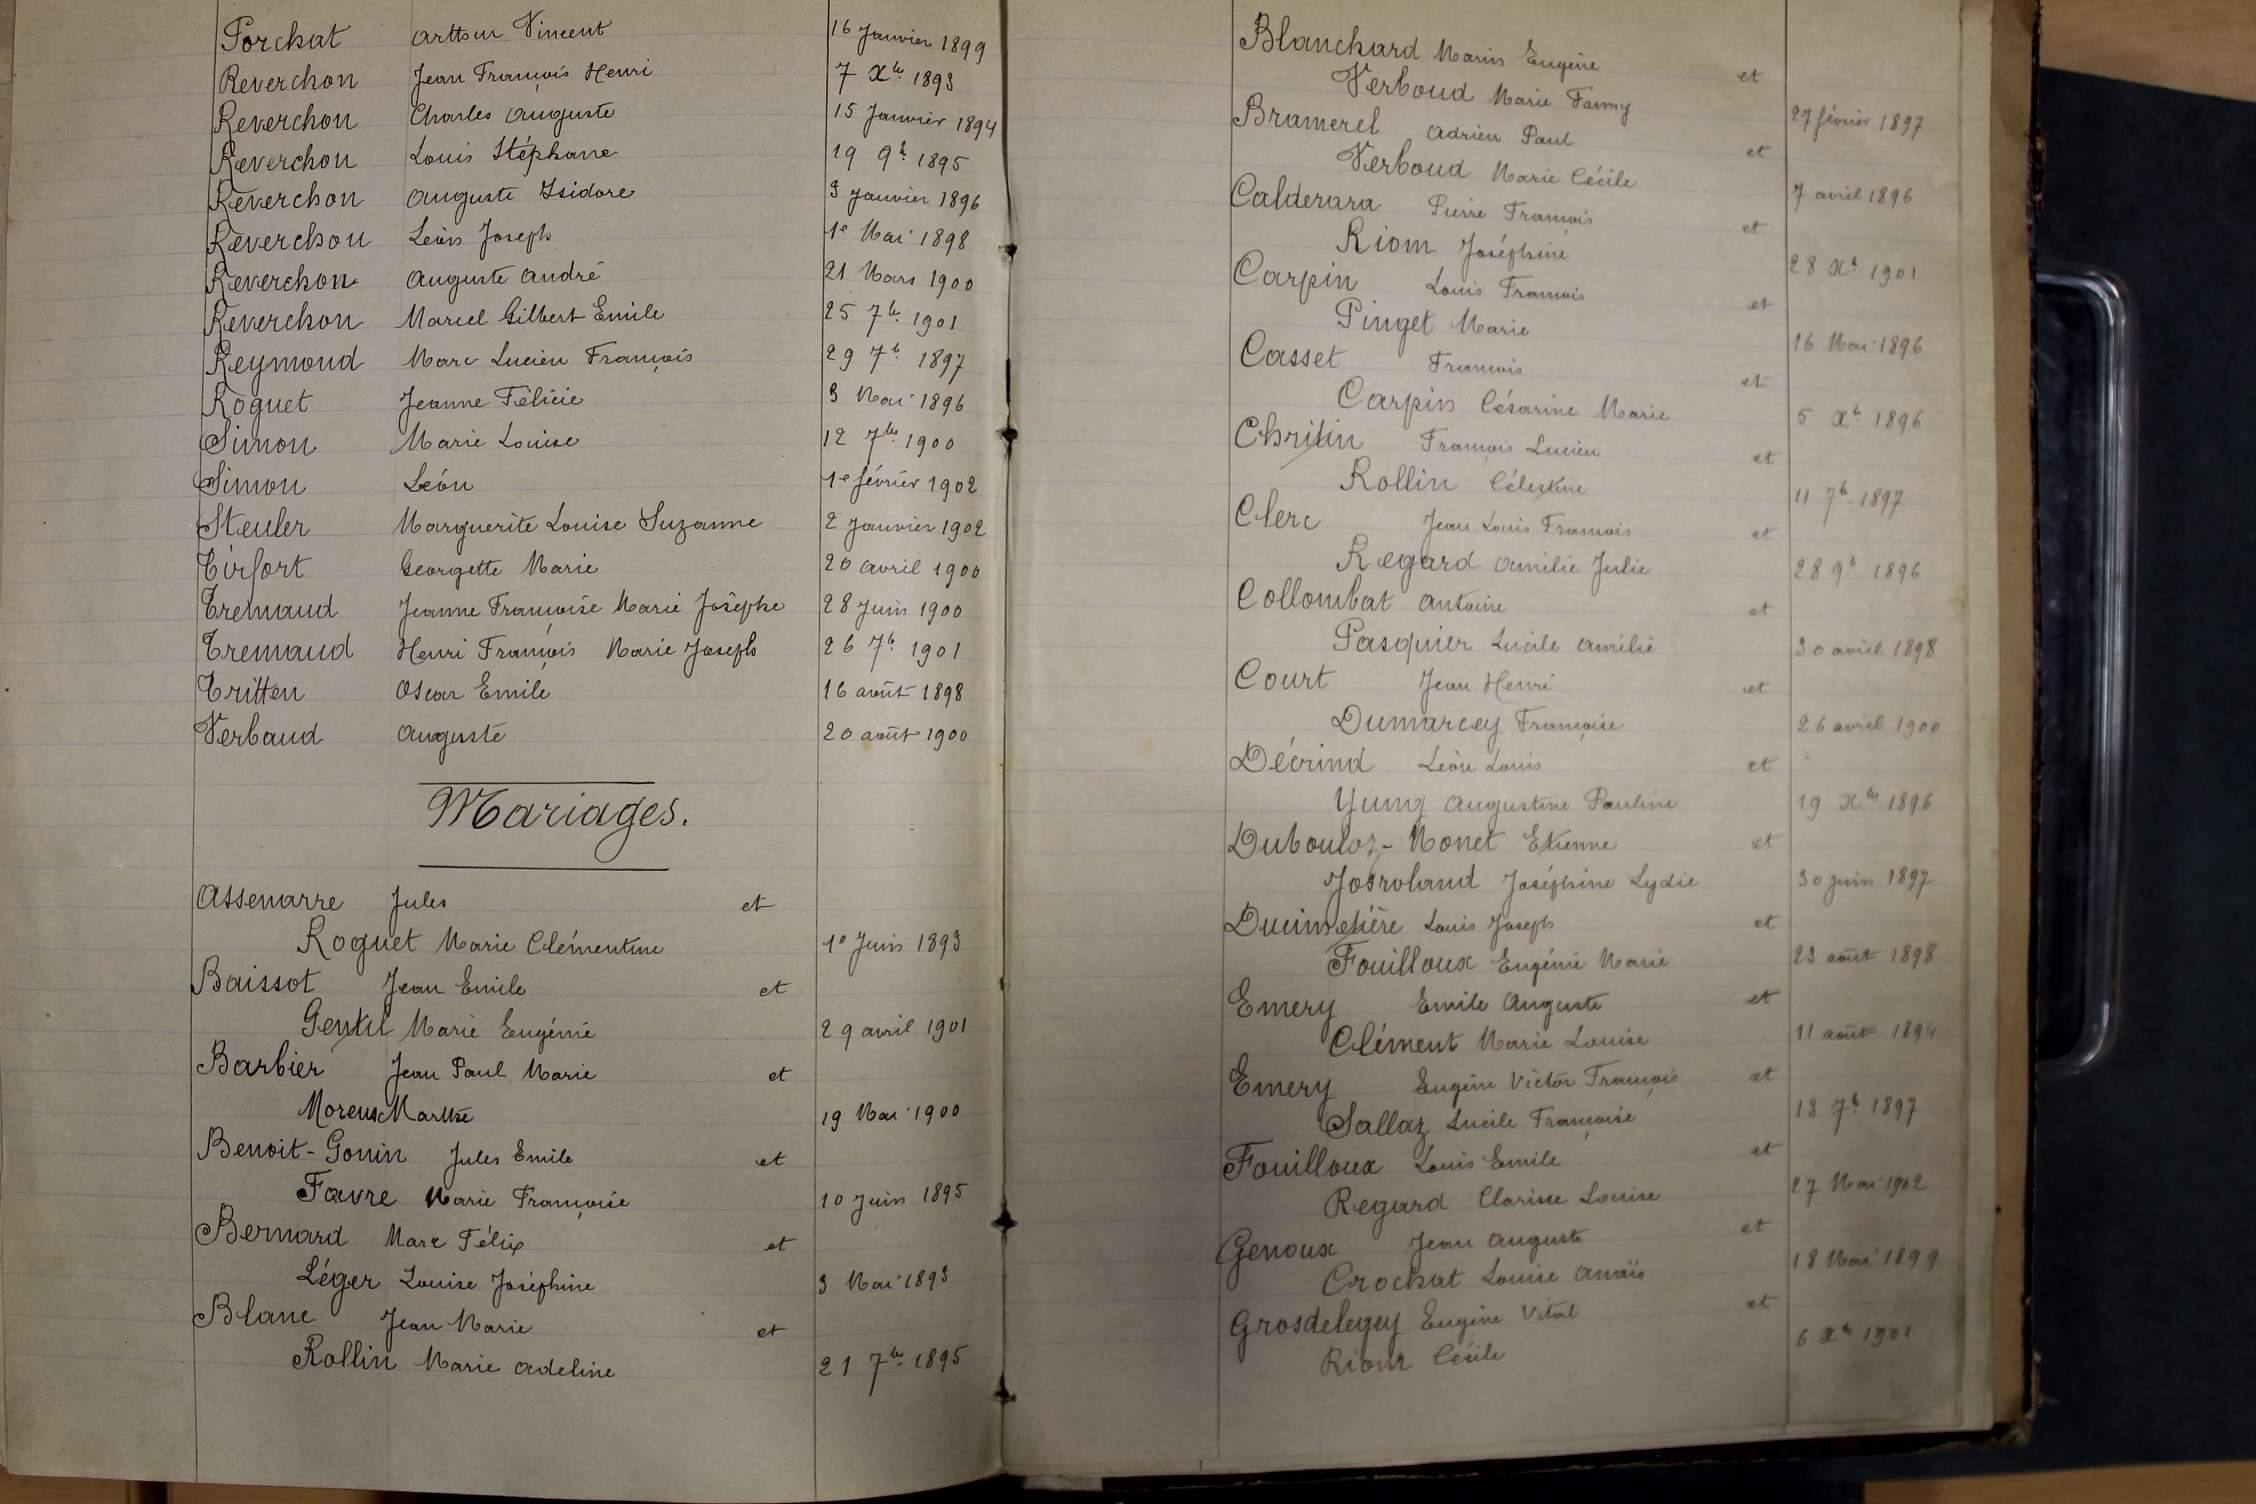 Porchat Arthur Vincent 16 Janvier 1899
Reverchon Jean François Henri 7 Xbre 1893
Reverchon Charles Auguste 15 Janvier 1894
Reverchon Louis Stéphane 19 9b. 1895
Reverchon Auguste Isidore 3 Janvier 1896
Reverchon Léon Joseph 1e Mai 1898
Reverchon Auguste André 21 Mars 1900
Reverchon Marcel Gilbert Emile 25 7br. 1901
Reymond Marc Lucien François 29 7b. 1897
Roguet Jeanne Félicie 3 Mai 1896
Simon Marie Louise 12 7bre 1900
Simon Léon 1e février 1902
Steuler Marguerite Louise Suzanne 2 Janvier 1902
Tirfort Georgette Marie 20 avril 1900
Tremaud Jeanne Françoise Marie Josèphe 28 Juin 1900
Tremaud Henri François Marie Joseph 26 7b. 1901
Tritten Oscar Emile 16 août 1898
Verbaud Auguste 20 août 1900
Mariages.
Assenarre Jules et
Roguet Marie Clémentine 1e Juin 1893
Baissot Jean Emile et
Gentil Marie Eugénie 29 avril 1901
Barbier Jean Paul Marie et
Moreux Marthe 19 Mai 1900
Benoit-Gonin Jules Emile et
Favre Marie Françoise 10 Juin 1895
Bernard Marc Félix et
Léger Louise Joséphine 3 Mai 1893
Blanc Jean Marie et
Rollin Marie Adeline 21 7br. 1895
Blanchard Marius Eugène et
Verboud Marie Fanny 27 février 1897
Bramerel Adrien Paul et
Verboud Marie Cécile 7 avril 1896
Calderara Pierre François et
Riom Joséphine 28 Xb. 1901
Carpin Louis François et
Pinget Marie 16 Mai 1896
Casset François et
Carpin Césarine Marie 5 Xb. 1896
Christin François Lucien et
Rollin Célestine 11 7b. 1897
Clerc Jean Louis François et
Regard Amélie Julie 28 9b 1896
Collombat Antoine et
Pasquier Lucile Amélie 30 avril 1898
Court Jean Henri et
Dumarcey Françoise 26 avril 1900
Décrind Léon Louis et
Yung Augustine Pauline 19 Xbre 1896
Dubouloz-Monet Etienne et
Josroland Joséphine Lydie 30 Juin 1897
Ducimetière Louis Joseph et
Fouilloux Eugénie Marie 23 août 1898
Emery Emile Auguste et
Clément Marie Louise 11 août 1894
Emery Eugène Victor François et
Sallaz Lucile Françoise 18 7b. 1897
Fouilloux Louis Emile et
Regard Clarisse Louise 27 Mai 1902
Genoux Jean Auguste et
Crochat Louise Anaïs 18 Mai 1899
Grosdelegey Eugène Vital et
Riom Cécile 6 Xbr 1901